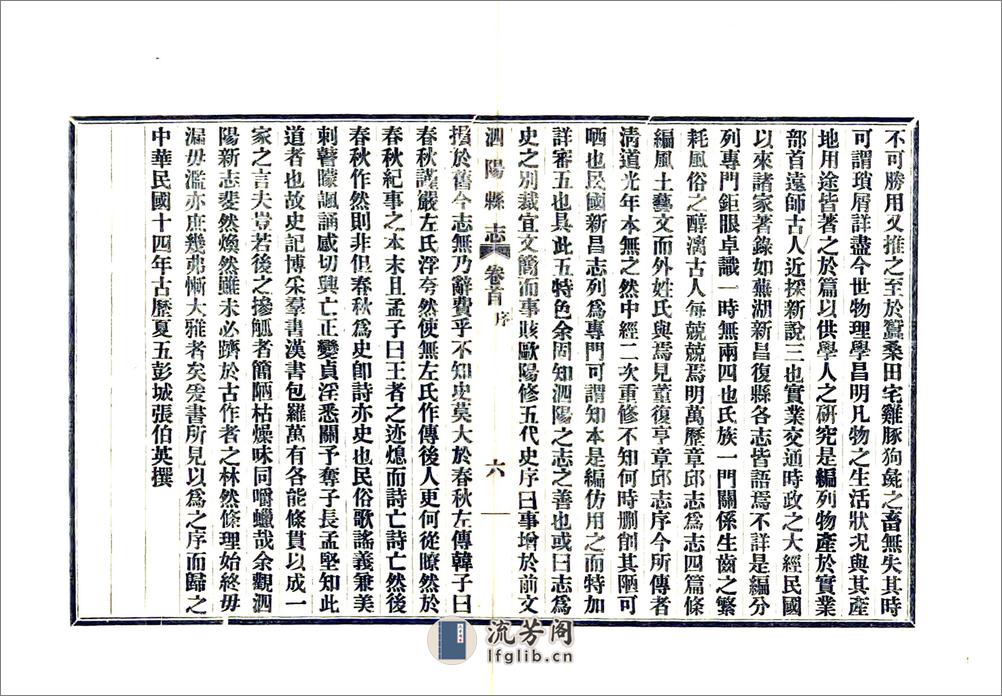 不可勝用又推之至於蠶桑田宅雞豚狗彘之畜無失其時
可謂瑣屑詳盡今世物理學昌明凡物之生活狀況與其產
地用途皆著之於篇以供學人之研究是編列物產於實業
部首遠師古人近探新說三也實業交通時政之大經民國
以來諸家著錄如蕪湖新昌復縣各志皆語焉不詳是編分
列專門鉅眼卓識一時無兩四也氏族一門關係生齒之繁
耗風俗之醇漓古人每兢兢焉明萬歷章邱志為志四篇條
編風土藝文而外姓氏與焉見董復亨章邱志序今所傳者
清道光年本無之然中經二次重修不知何時刪削其陋可
哂也民國新昌志列為專門可謂知本是編仿用之而特加
詳審五也具此五特色余固知泗陽之志之善也或曰志為
史之別裁宜文簡而事賅歐陽修五代史序曰事增於前文
泗陽縣志 卷首 序 六
損於舊今志無乃辭費乎不知史莫大於春秋左傳韓子曰
春秋謹嚴左氏浮夸然使無左氏作傳後人更何從瞭然於
春秋紀事之本末且孟子曰王者之迹熄而詩亡詩亡然後
春秋作然則非但春秋為史即詩亦史也民俗歌謠義兼美
刺瞽矇諷誦感切興亡正變貞淫悉關予奪子長孟堅知此
道者也故史記博采羣書漢書包羅萬有各能條貫以成一
家之言夫豈若後之摻觚者簡陋枯燥味同嚼蠟哉余觀泗
陽新志斐然煥然雖未必躋於古作者之林然條理始終毋
漏毋濫亦庶幾弗慚大雅者矣爰書所見以為之序而歸之
中華民國十四年古歷夏五彭城張伯英撰
流芳阁
lfglib.cn